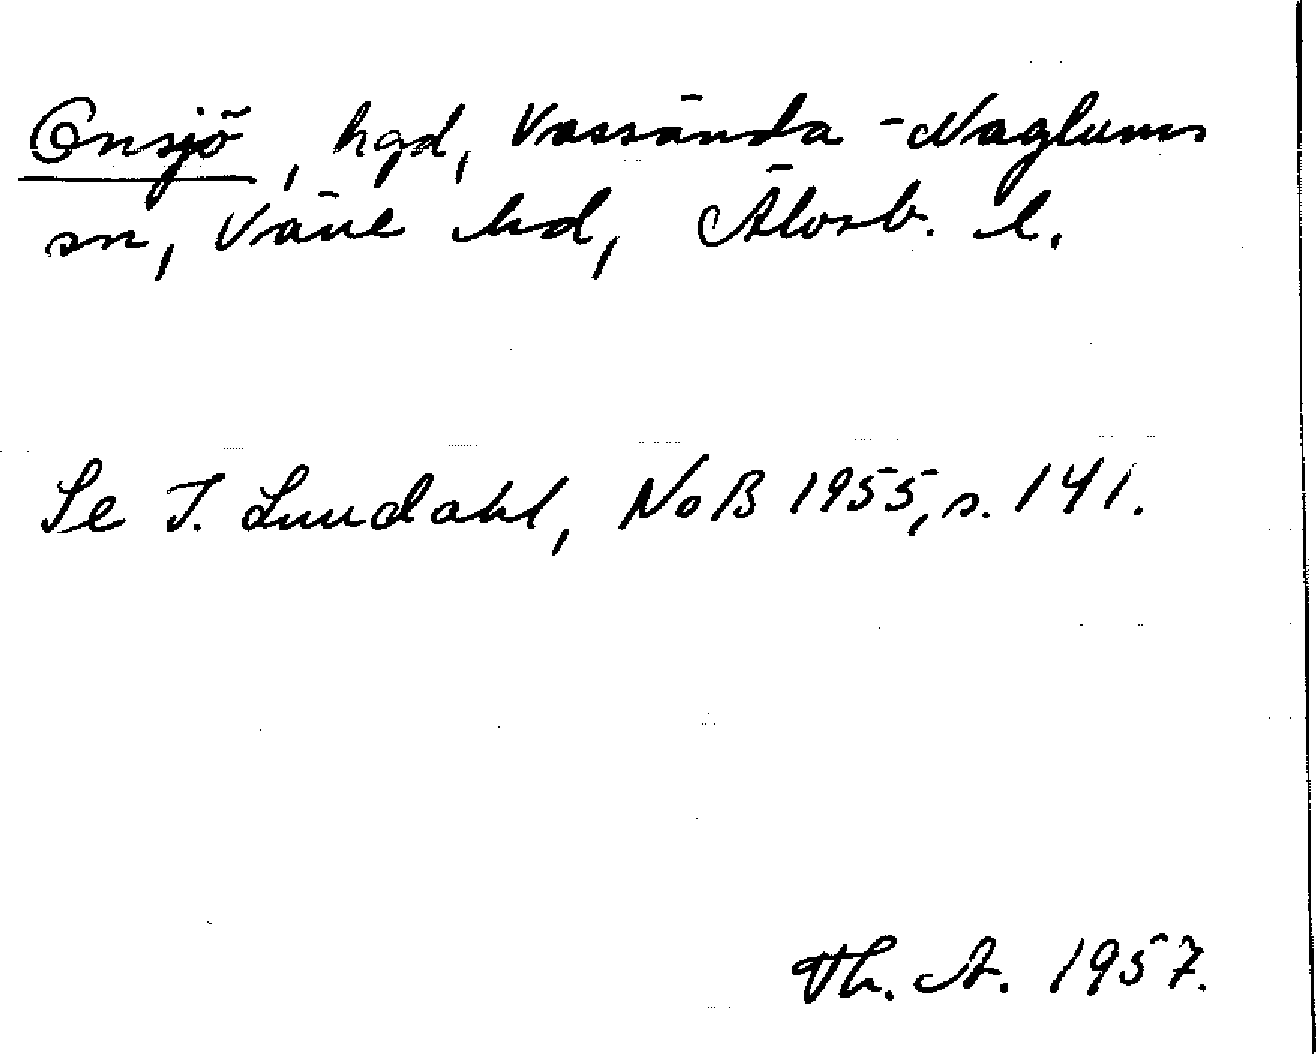 Onsjö, hgd, Vassända-Naglums
sn, Väne hd, Älvsb. l.
Se I. Lundahl, NoB 1955, s. 141.
Th. A. 1957.